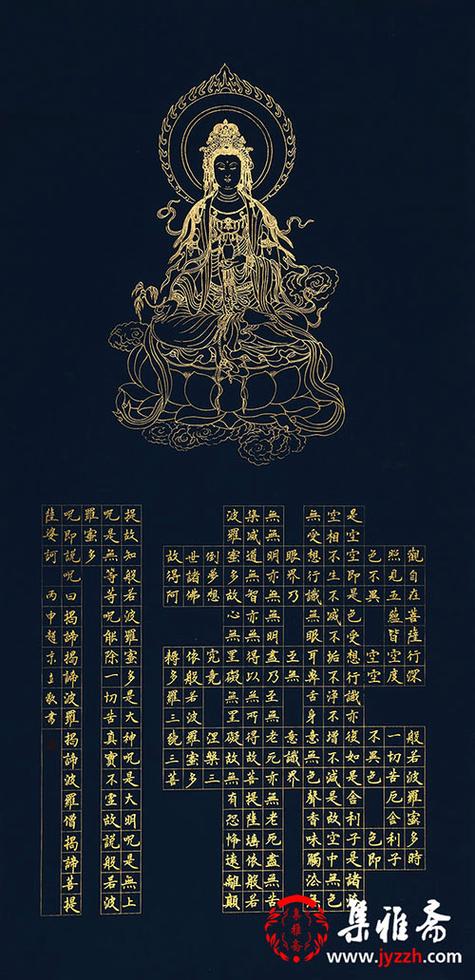 觀自在菩薩行深 般若波羅蜜多時
照見五蘊皆空度 一切苦厄舍利子
色不異 空空 不異色 色即
是空空即是色受想行識亦復如是舍利子是諸法
空相不生不滅不垢不淨不增不減是故空中無色
無受想行識無眼耳鼻舌身意無色聲香味觸法無
眼界乃 至無 意識界
無無明亦無無明盡乃至無老死亦無老死盡無苦
集滅道無智亦無得以無所得故菩提薩埵依般若
波羅蜜多故心無罣礙無罣礙故無有恐怖遠離顛
倒夢想 究竟 涅槃三
世諸佛 依般若波羅蜜多
故得阿 耨多羅三藐三菩
提故知般若波羅蜜多是大神呪是大明呪是無上
呪是無等等呪能除一切苦真實不虛故說般若波
羅蜜多
呪即說呪曰揭諦揭諦波羅揭諦波羅僧揭諦菩提
薩婆訶 丙申趙京立敬書
集雅斋
www.jyzzh.com